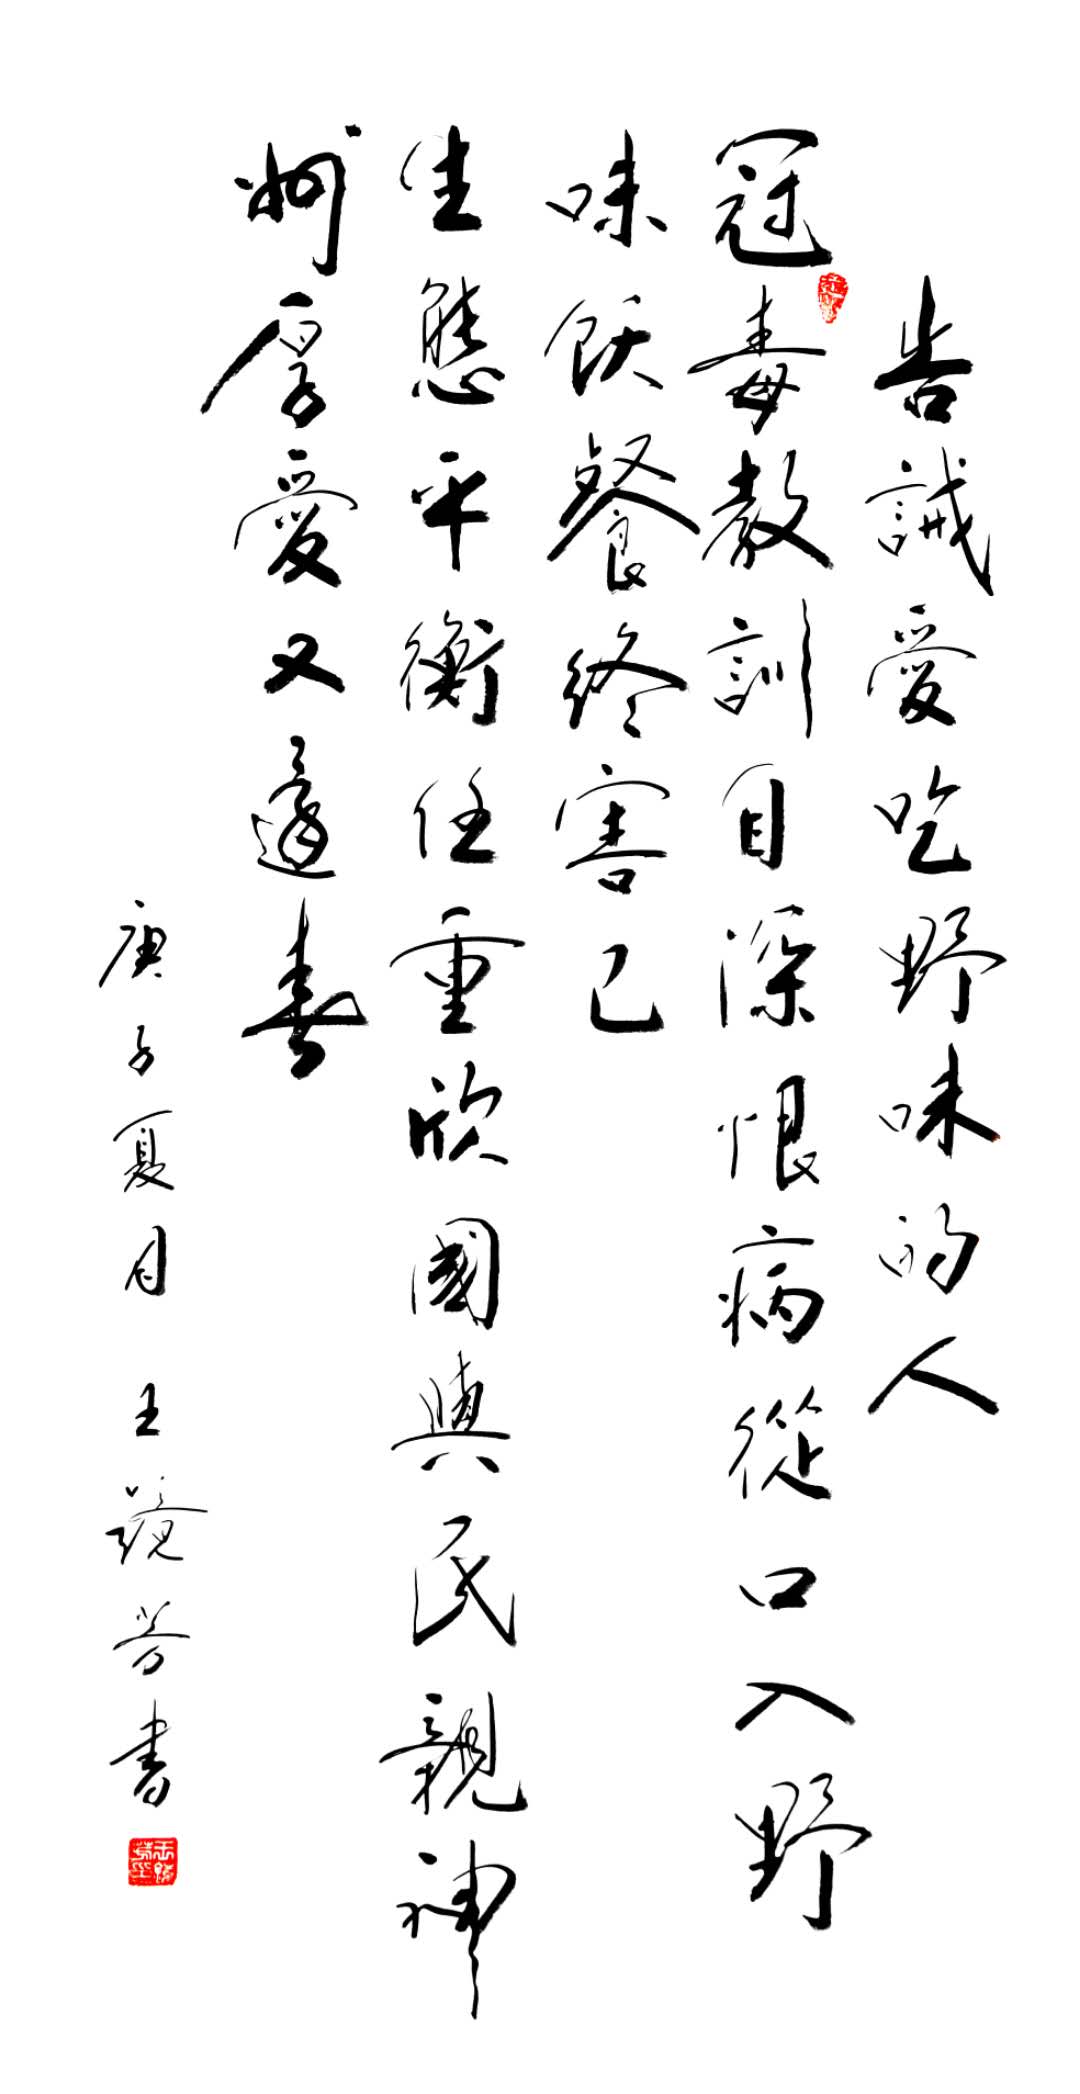 告誡愛吃野味的人
冠毒教訓自深恨病從口入野
味飫餐終害己
生態平衡任重欣國與民親神
州厚愛又適春
庚子夏月 王芳書